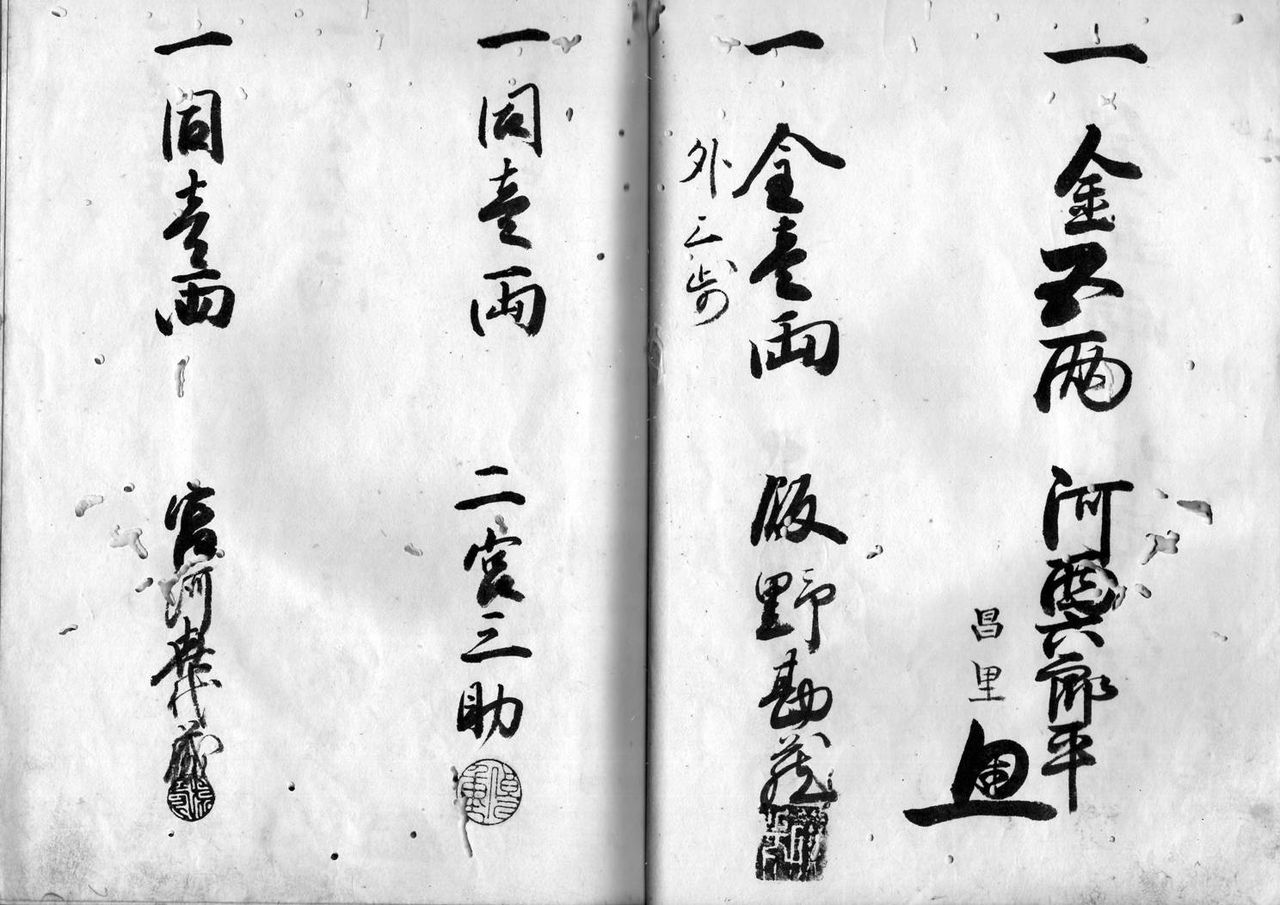 一 金五両 河西六郎平
昌里
一 金壱両 飯野勘蔵
外三歩
一 同壱両 二宮三助
一 同壱両 宮河喜代蔵